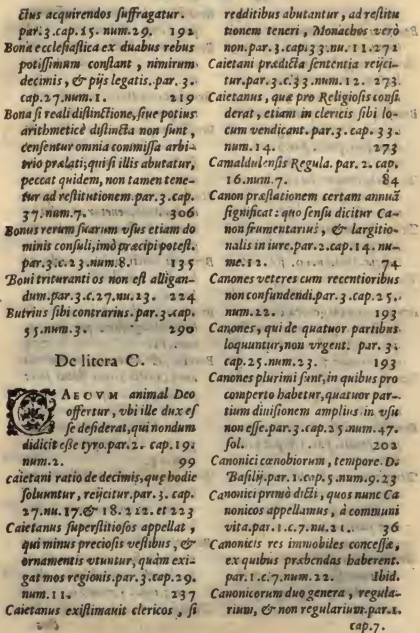 ctius acquirendos suffragatur.
par.3.cap.15. num.29. 192
Bona ecclesiastica ex duabus rebus
potissimum constant, nimirum
decimis, & pijs legatis. par. 3.
cap.27.num.1. 219
Bona si reali distinctione, siue potius
arithmeticè distincta non sunt,
censentur omnia commissa arbi-
trio prælati; qui si illis abutatur,
peccat quidem, non tamen tene-
tur ad restitutionem.par.3.cap.
37.num.7. 306
Bonus rerum suarum vsus etiam do
minis consuli, imò præcipi potest.
par.3.c.23.num.8. 135
Boui trituranti os non est alligan-
dum.par.3.c.27.nu.23. 224
Butrius sibi contrarius.par.3.cap.
35.num.3. 290
De litera C.
CAECVM animal Deo
offertur, vbi ille dux es
se desiderat, qui nondum
didicit esse tyro.par.2. cap.19.
num.2. 99
Caietani ratio de decimis, quę hodie
soluuntur, reijcitur.par.3. cap.
27.nu.17.& 18.212.et 223
Caietanus superstitiosos appellat,
qui minus preciosis vestibus, &
ornamentis vtuntur, quàm exi-
gat mos regionis.par.3.cap.29.
num.11. 237
Caietanus existimauit clericos, si
redditibus abutantur, ad restitu
tionem teneri, Monachos verò
non.par.3.cap.33.nu.11.272
Caietani prædicta sententia reijci-
tur.par.3.c.33.num.12. 273.
Caietanus, quæ pro Religiosis consi
derat, etiam in clericis sibi lo-
cum vendicant.par.3. cap. 33.
num.14. 273
Camaldulensis Regula. par. 2. cap.
16.num.7. 84
Canon præstationem certam annuā
significat: quo sensu dicitur Ca-
non frumentarius, & largitio-
nalis in iure.par.2.cap.14. nu-
me.12. 74
Canones veteres cum recentioribus
non confundendi.par.3.cap.25.
num.22. 193
Canones, qui de quatuor partibus
loquuntur, non vrgent. par. 3.
cap.25.num.23. 193
Canones plurimi sunt, in quibus pro
comperto habetur, quatuor par-
tium diuisionem amplius in vsu
non esse.par.3.cap.25.num.47.
fol. 202
Canonici cœnobiorum, tempore. D.
Basilij.par.1.cap.5.num.9.23
Canonici primò dicti, quos nunc Ca
nonicos appellamus, à communi
vita.par.1.c.7.nu.21. 36
Canonicis res immobiles concessæ,
ex quibus præbendas haberent.
par.1.c.7.num.22. Ibid.
Canonicorum duo genera, regula-
rium, & non regularium.par.1.
cap.7.